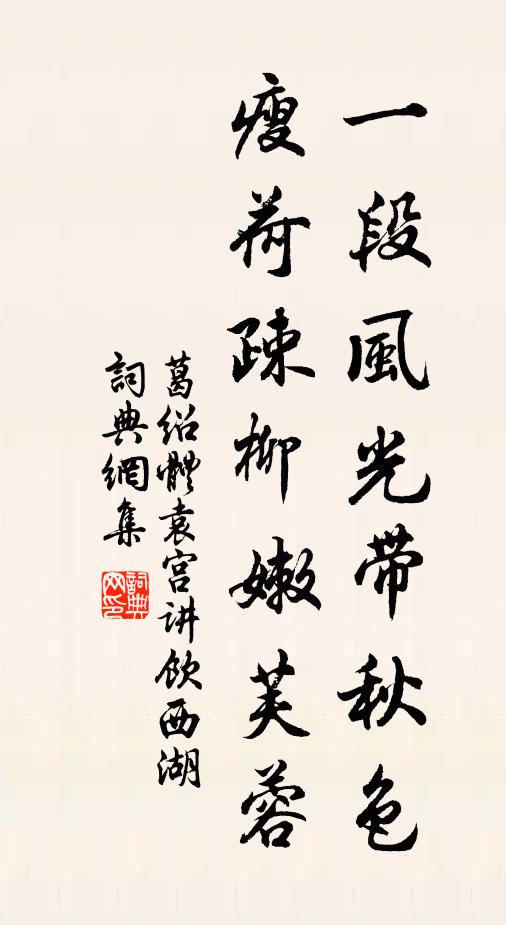 一段風光帶秋色
瘦荷疎柳嫩芙蓉
葛绍體袁宫讲饮西湖
詞典網集
詞典
网印